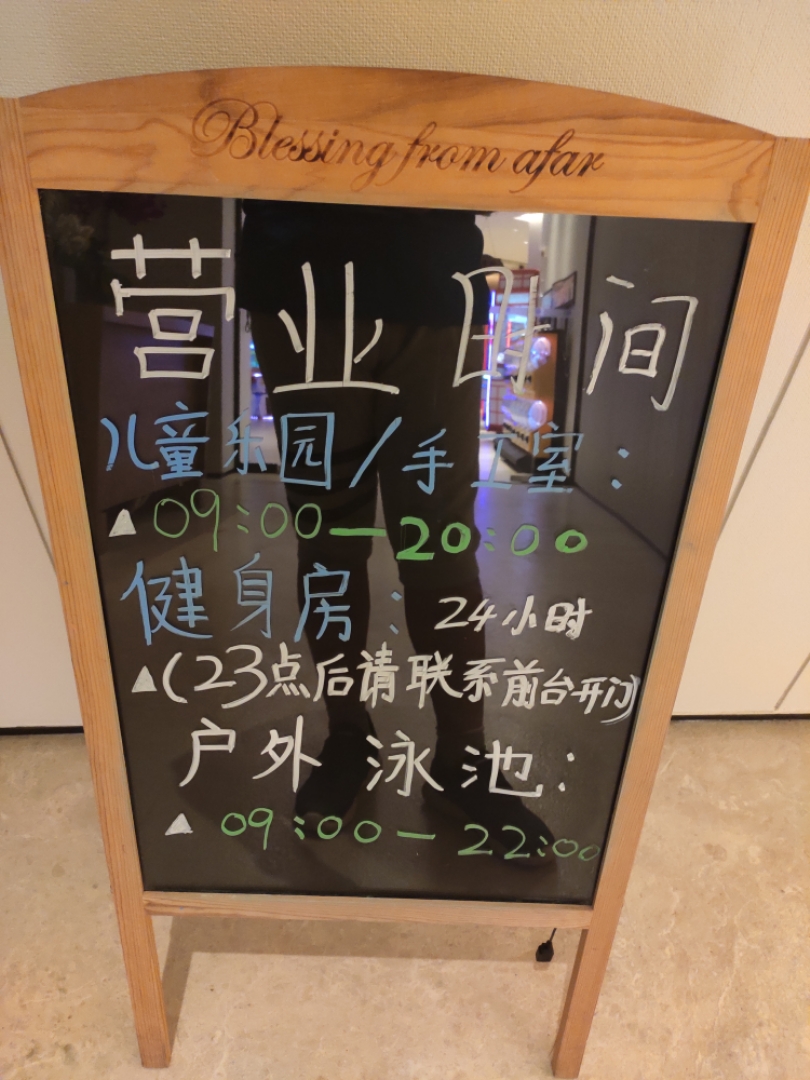 Blessing from afar
营业时间
儿童乐园/手工室:
▲09:00—20:00
健身房: 24小时
▲(23点后请联系前台开门)
户外泳池:
▲ 09:00— 22:00